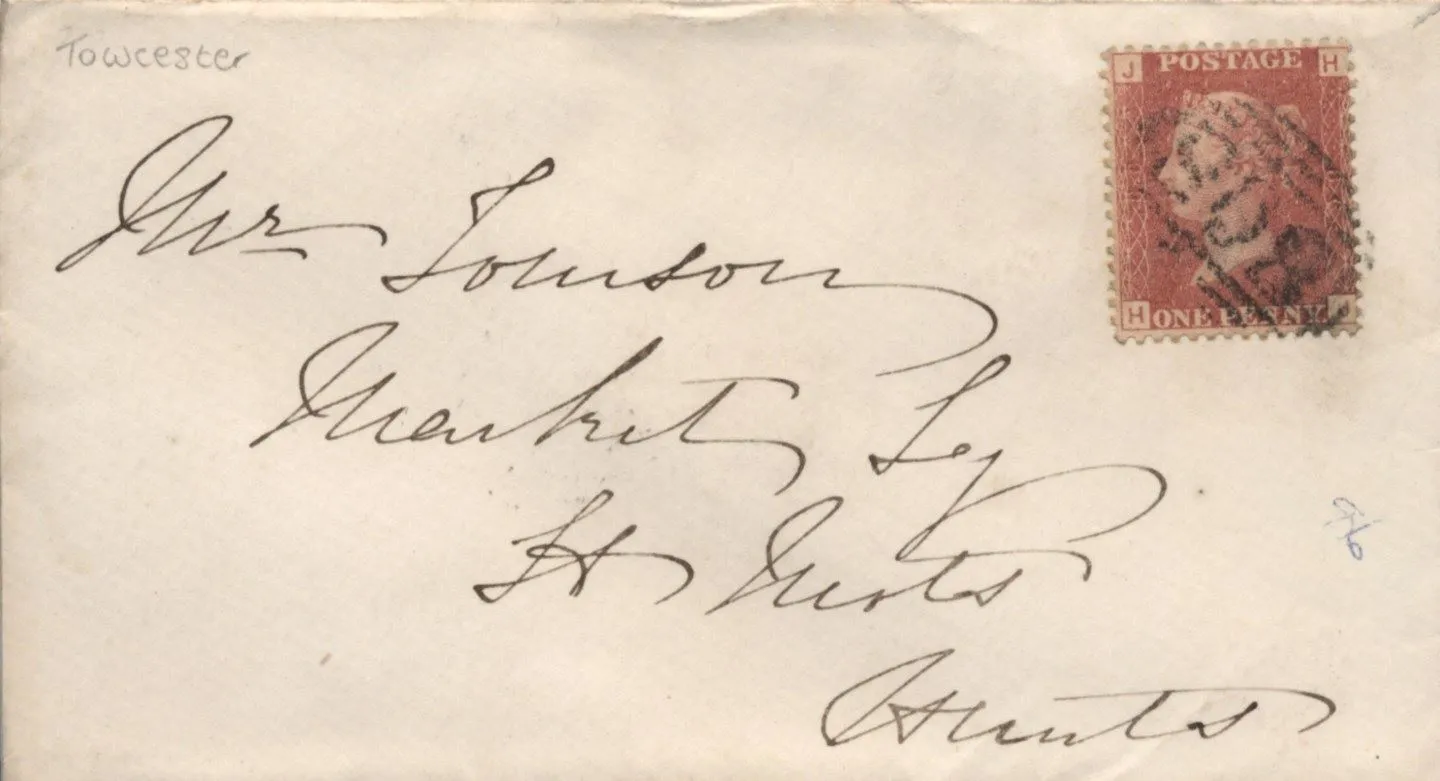 Towcester
J POSTAGE H
H ONE PENNY J
Mr Johnson
Market Sq
St Neots
Hunts